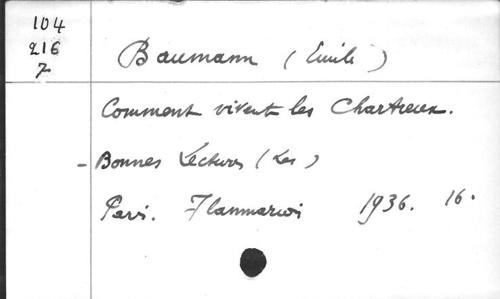 104
216
7
Baumann (Emile)
Comment vivent les Chartreux.
- Bonnes Lectures (Les)
Paris. Flammarion 1936. 16.